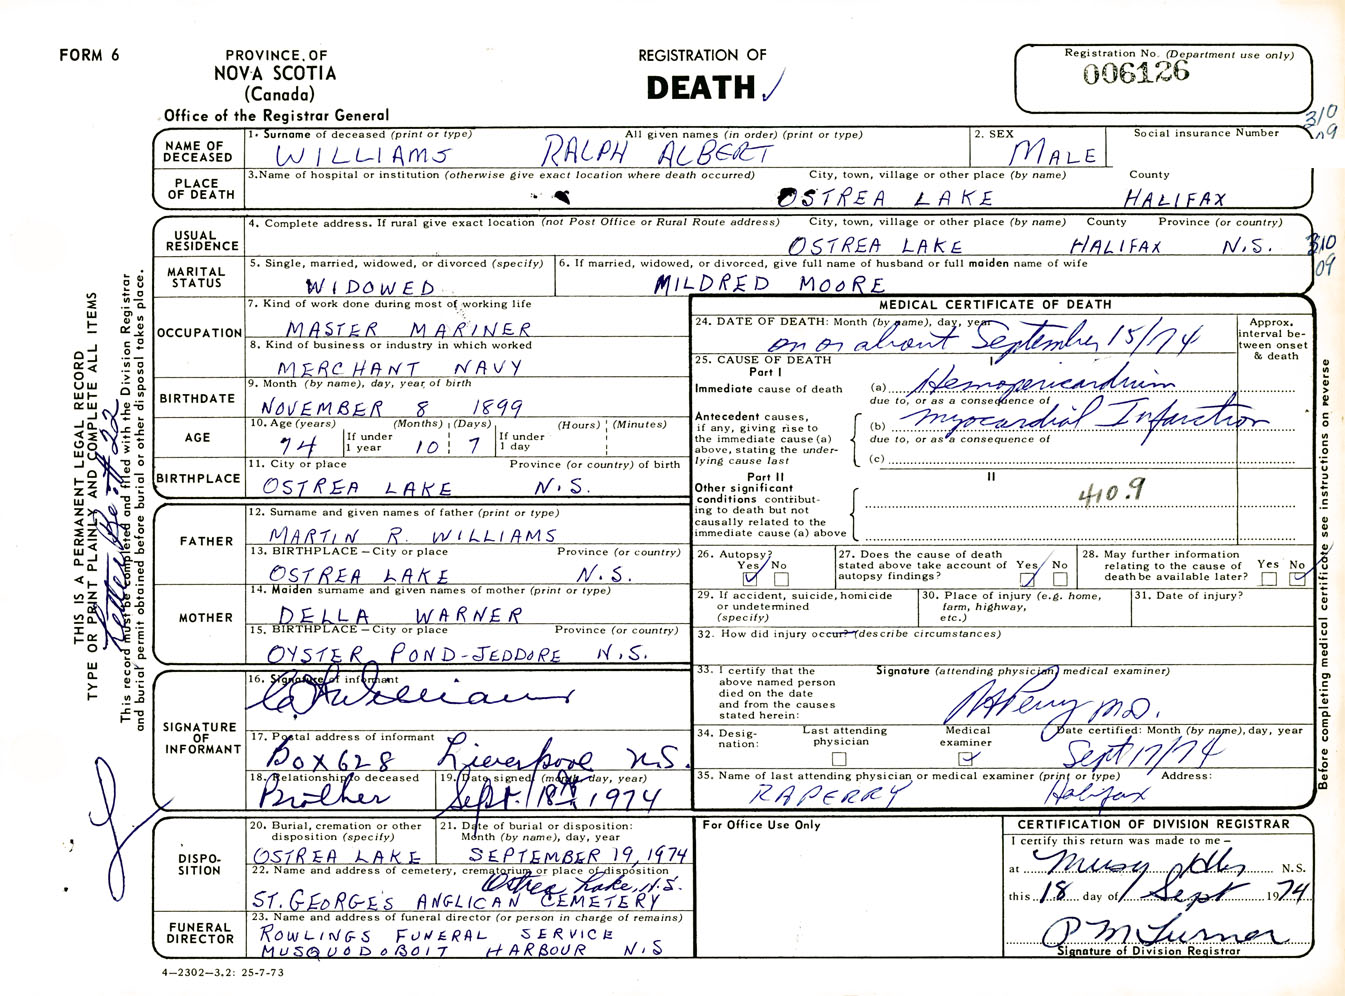 FORM 6
PROVINCE OF
NOVA SCOTIA
(Canada)
Office of the Registrar General
REGISTRATION OF
DEATH
Registration No. (Department use only)
006126
310
09
NAME OF DECEASED
1. Surname of deceased (print or type) All given names (in order) (print or type)
WILLIAMS RALPH ALBERT
2. SEX
MALE
Social insurance Number
PLACE OF DEATH
3. Name of hospital or institution (otherwise give exact location where death occurred) City, town, village or other place (by name) County
OSTREA LAKE HALIFAX
USUAL RESIDENCE
4. Complete address. If rural give exact location (not Post Office or Rural Route address) City, town, village or other place (by name) County Province (or country)
OSTREA LAKE HALIFAX N.S.
310
09
MARITAL STATUS
5. Single, married, widowed, or divorced (specify)
WIDOWED
6. If married, widowed, or divorced, give full name of husband or full maiden name of wife
MILDRED MOORE
OCCUPATION
7. Kind of work done during most of working life
MASTER MARINER
8. Kind of business or industry in which worked
MERCHANT NAVY
BIRTHDATE
9. Month (by name), day, year of birth
NOVEMBER 8 1899
AGE
10. Age (years) (Months) (Days) (Hours) (Minutes)
74 If under 1 year 10 7 If under 1 day
BIRTHPLACE
11. City or place Province (or country) of birth
OSTREA LAKE N.S.
FATHER
12. Surname and given names of father (print or type)
MARTIN R. WILLIAMS
13. BIRTHPLACE - City or place Province (or country)
OSTREA LAKE N.S.
MOTHER
14. Maiden surname and given names of mother (print or type)
DELLA WARNER
15. BIRTHPLACE - City or place Province (or country)
OYSTER POND - JEDDORE N.S.
SIGNATURE OF INFORMANT
16. Signature of informant
Williams
17. Postal address of informant
Box 628 Liverpool N.S.
18. Relationship to deceased
Brother
19. Date signed (month, day, year)
Sept. 18th, 1974
DISPOSITION
20. Burial, cremation or other disposition (specify)
OSTREA LAKE
21. Date of burial or disposition: Month (by name), day, year
SEPTEMBER 19, 1974
22. Name and address of cemetery, crematorium or place of disposition
Ostrea Lake, N.S.
ST. GEORGE'S ANGLICAN CEMETERY
FUNERAL DIRECTOR
23. Name and address of funeral director (or person in charge of remains)
ROWLINGS FUNERAL SERVICE
MUSQUODOBOIT HARBOUR N.S
4-2302-3.2: 25-7-73
MEDICAL CERTIFICATE OF DEATH
24. DATE OF DEATH: Month (by name), day, year
on or about September 15/74
Approx. interval between onset & death
25. CAUSE OF DEATH
Part I
I
Immediate cause of death
(a) Hemopericardium
due to, or as a consequence of
Antecedent causes, if any, giving rise to the immediate cause (a) above, stating the underlying cause last
(b) Myocardial Infarction
due to, or as a consequence of
(c)
Part II
II
Other significant conditions contributing to death but not causally related to the immediate cause (a) above
410.9
26. Autopsy?
Yes No
27. Does the cause of death stated above take account of autopsy findings?
Yes No
28. May further information relating to the cause of death be available later?
Yes No
29. If accident, suicide, homicide or undetermined (specify)
30. Place of injury (e.g. home, farm, highway, etc.)
31. Date of injury?
32. How did injury occur? (describe circumstances)
33. I certify that the above named person died on the date and from the causes stated herein:
Signature (attending physician) medical examiner)
RAPerry M.D.
34. Designation:
Last attending physician
Medical examiner
Date certified: Month (by name), day, year
Sept 17/74
35. Name of last attending physician or medical examiner (print or type) Address:
R A PERRY Halifax
For Office Use Only
CERTIFICATION OF DIVISION REGISTRAR
I certify this return was made to me -
at Musq Hbr N.S.
this 18 day of Sept 1974
P M Turner
Signature of Division Registrar
THIS IS A PERMANENT LEGAL RECORD
TYPE OR PRINT PLAINLY AND COMPLETE ALL ITEMS
This record must be completed and filed with the Division Registrar
and burial permit obtained before burial or other disposal takes place.
Before completing medical certificate see instructions on reverse